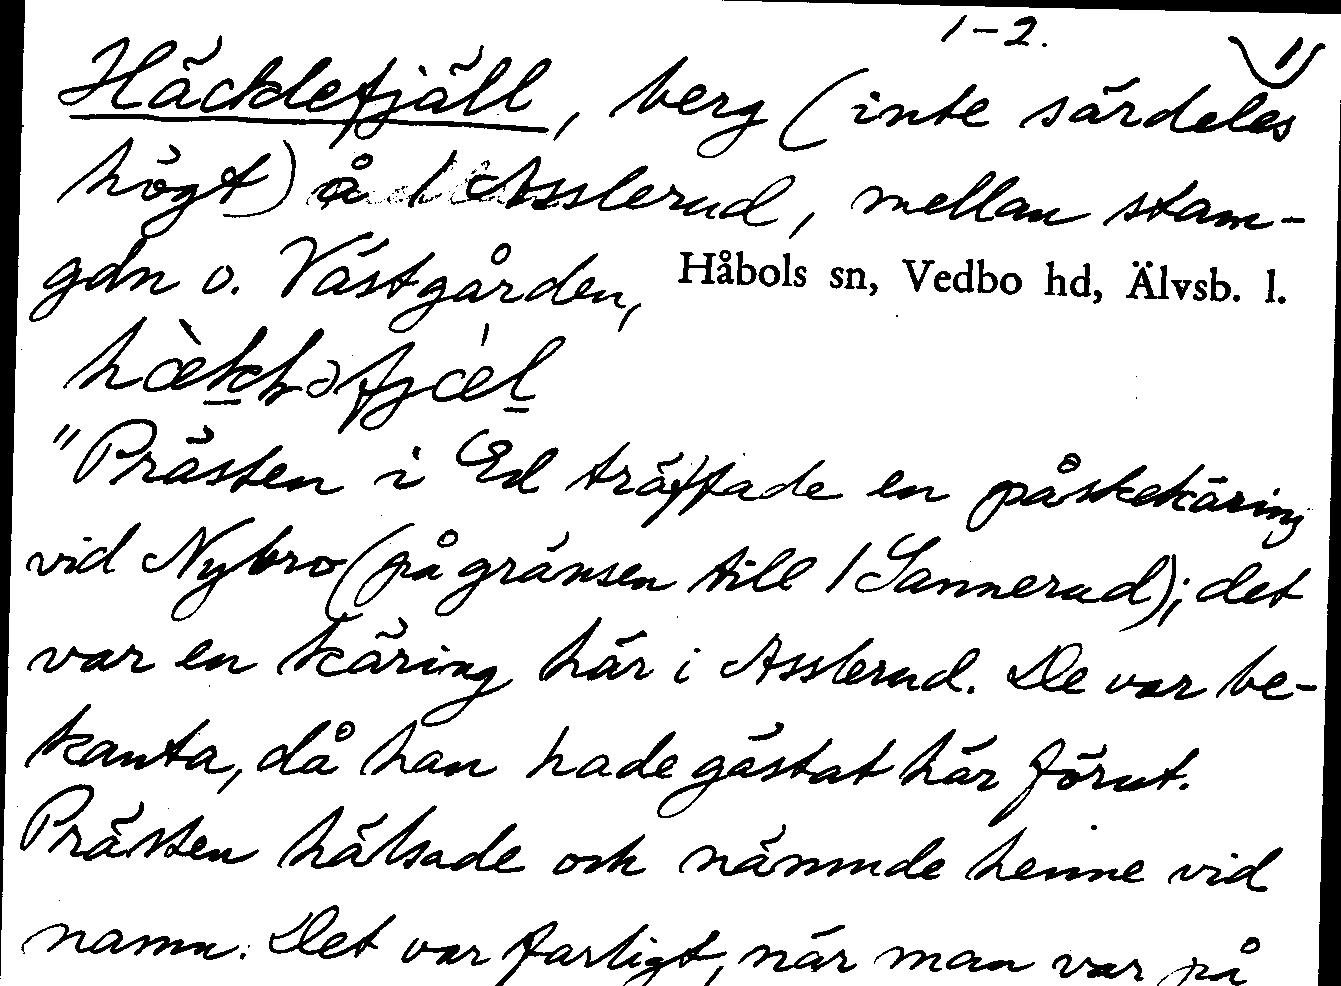 1-2.
1)
Häcklefjäll, berg (inte särdeles
högt) å 1 Asslerud, mellan stam-
gdn o. Västgården,
Håbols sn, Vedbo hd, Älvsb. l.
"Prästen i Ed träffade en påskekäring
vid Nybro (på gränsen till 1 Sannerud); det
var en käring här i Asslerud. De var be-
kanta, då han hade gästat här förut.
Prästen hälsade och nämnde henne vid
namn. Det var farligt, när man var på